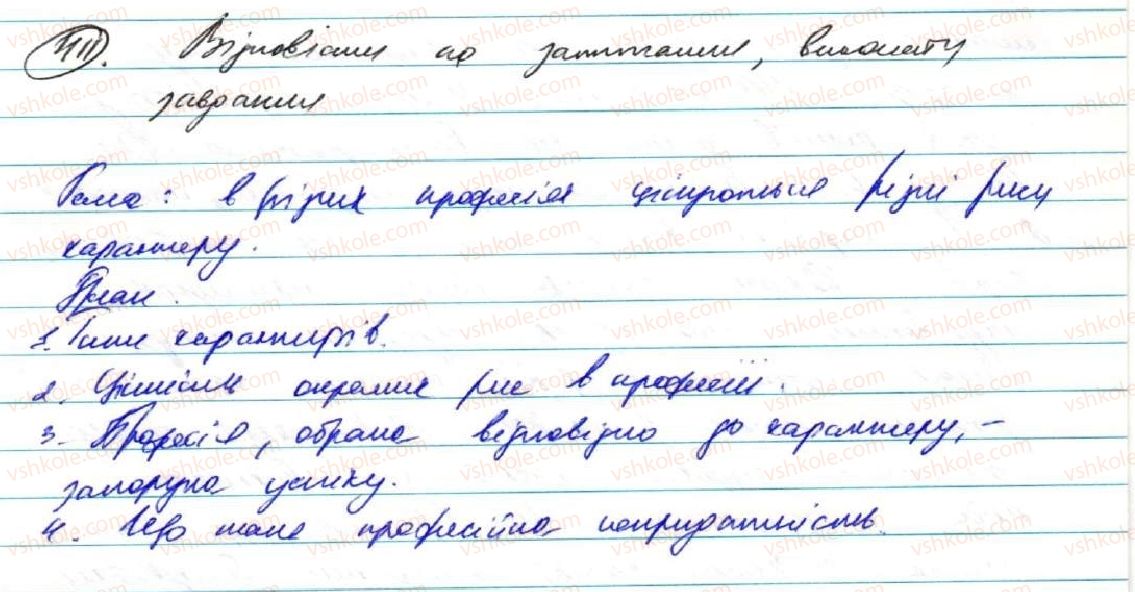 411. Відповісти на запитання, виконати
завдання
Тема: в різних професіях цінуються різні риси
характеру.
План.
1. Типи характерів.
2. Цінність окремих рис в професії.
3. Професія, обрана відповідно до характеру, –
запорука успіху.
4. Що таке професійна непридатність.